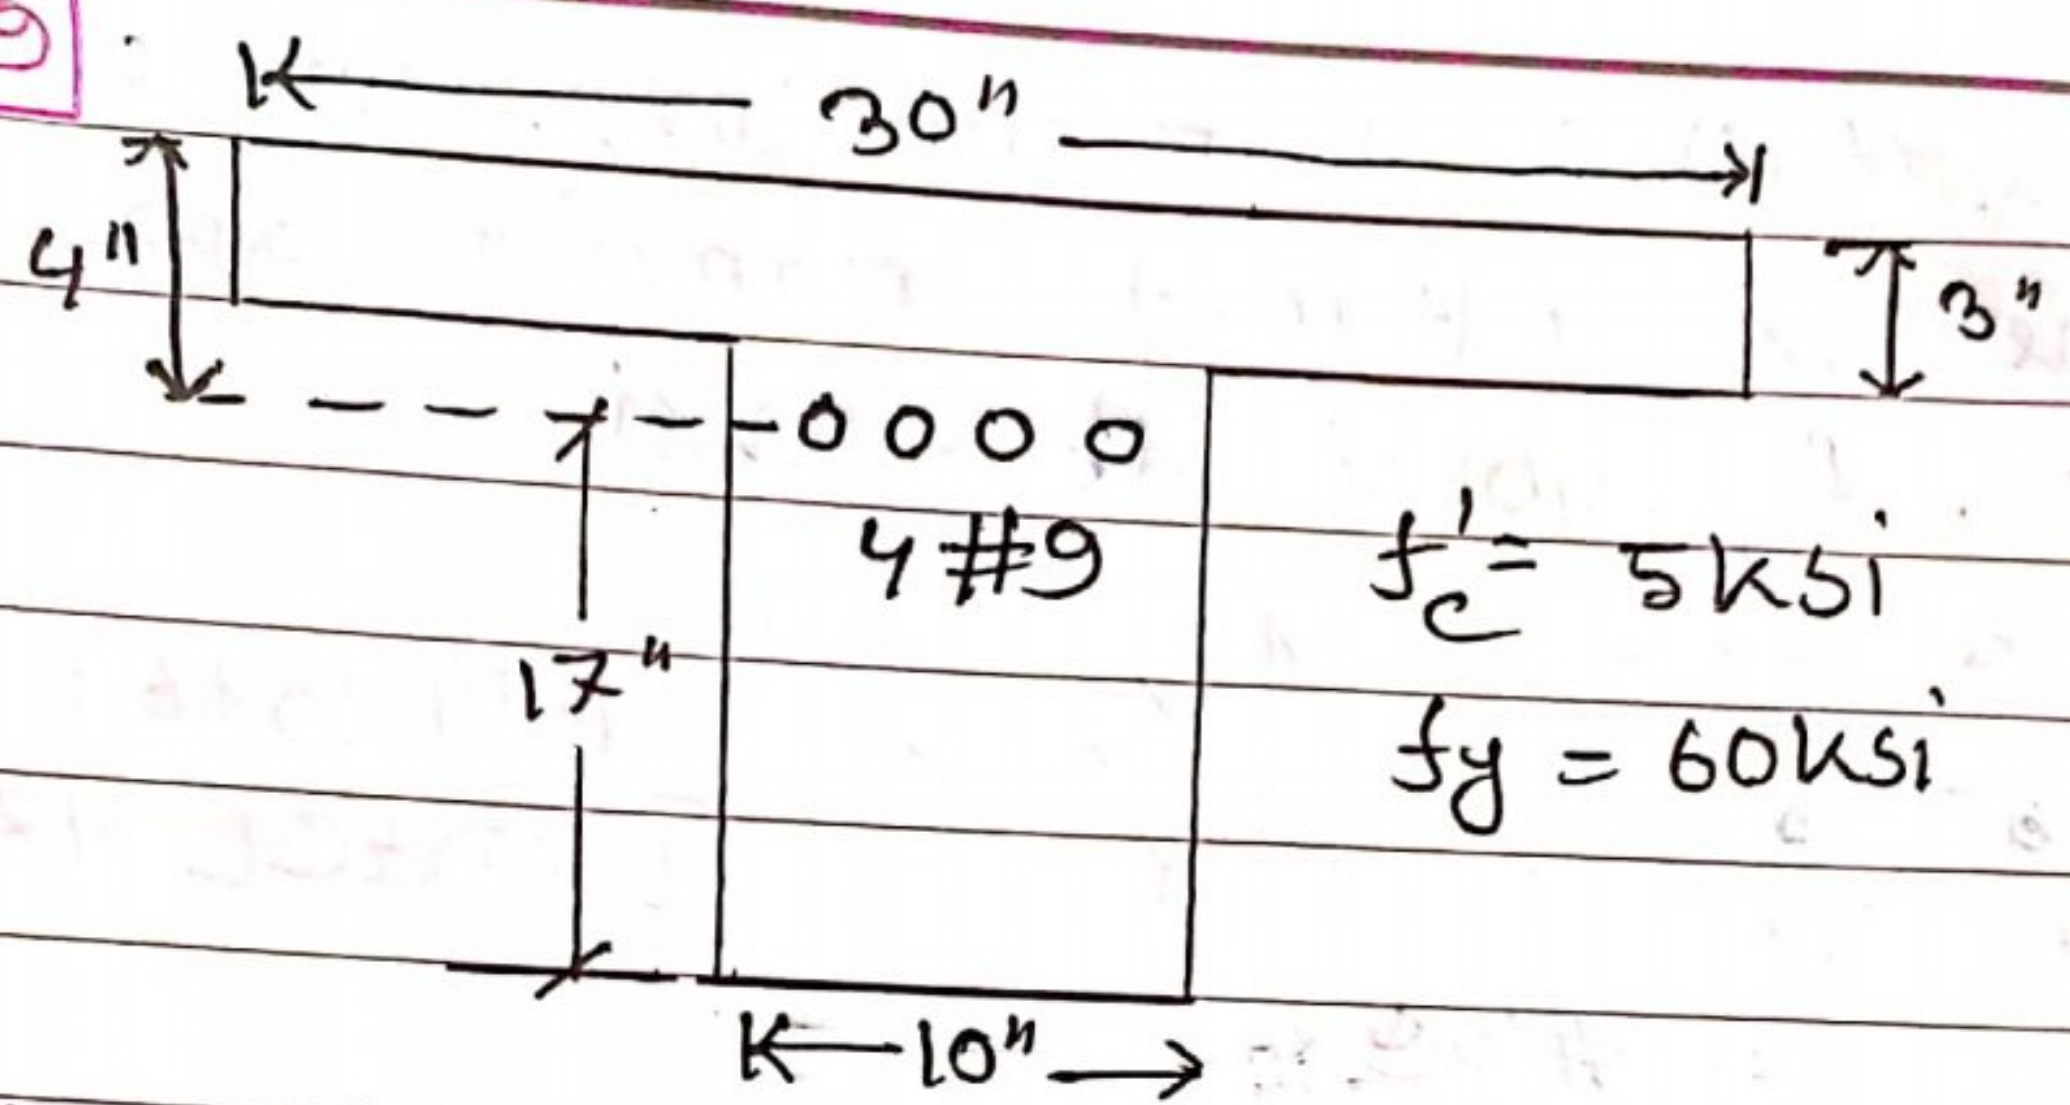 30"
4"
3"
0 0 0 0
4#9
17"
f'c = 5ksi
fy = 60ksi
10"